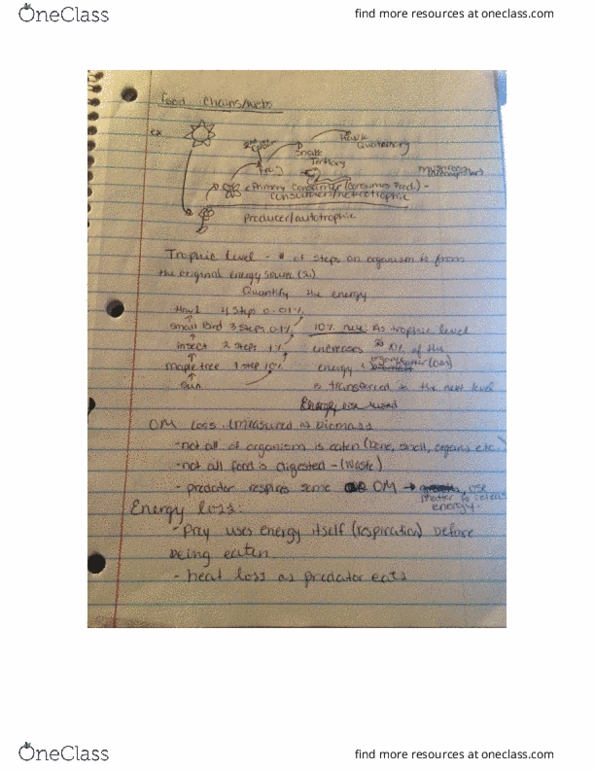 OneClass
find more resources at oneclass.com
Food Chains/Webs
ex
Hawk
Quaternary
Snake
Tertiary
Frog
Primary Consumer (consumes Prod.) -
consumers/heterotrophic
Producer/autotrophic
Trophic level - # of steps an organism is from
the original energy source
Quantify the energy
4 Steps 0.01%
Small Bird 3 Steps 0.1% 10% rule: As trophic level
insect 2 Steps 1% increases 10% of the
maple tree 1 Step 10% energy organic matter (OM)
sun is the next level
OM loss (measured as biomass
-not all of organism is eaten (bone, shell, organs etc.)
-not all food is digested - (waste)
- predator respires some OM → use
matter to release
energy.
Energy loss:
- Pray uses energy itself (respiration) before
being eaten
- heat loss as predator eats
OneClass
find more resources at oneclass.com